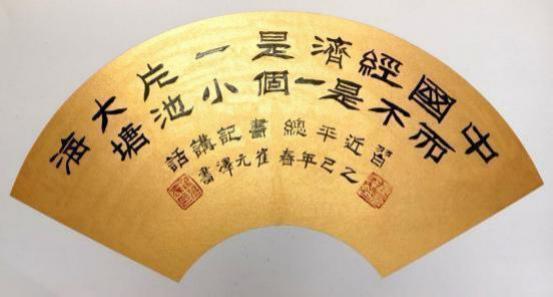 中國經濟是一片大海
而不是一個小池塘
習近平總書記講話
乙巳年春崔元書